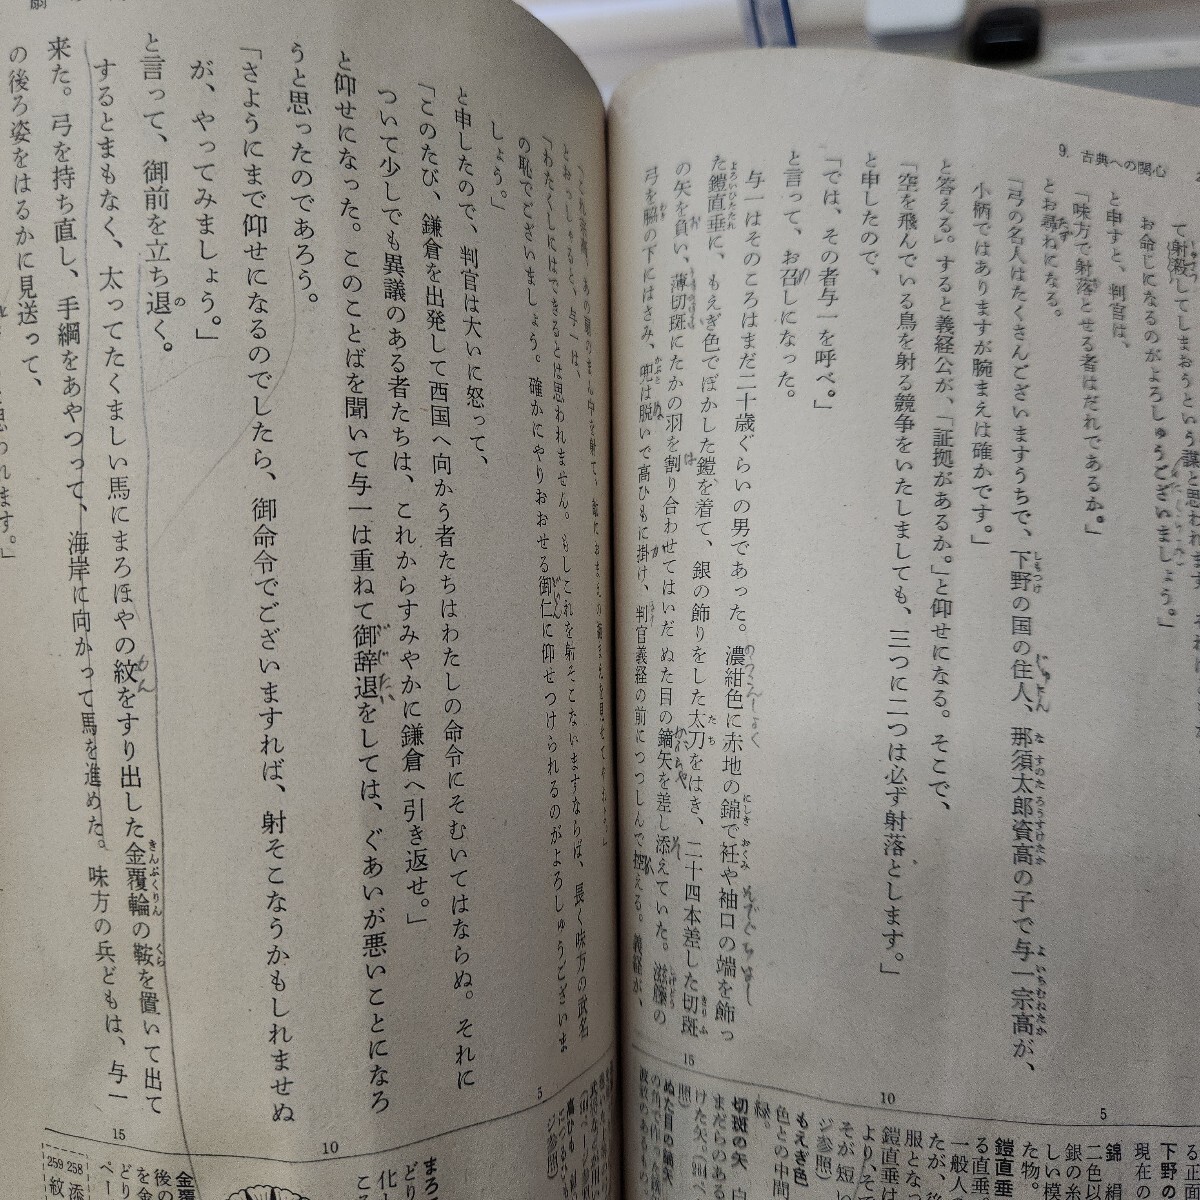 9. 古典への関心
て射殺してしまおうという謀と思われます。
お命じになるのがよろしゅうございましょう。」
と申すと、判官は、
「味方で射落とせる者はだれであるか。」
とお尋ねになる。
「弓の名人はたくさんございますうちで、下野の国の住人、那須太郎資高の子で与一宗高が、
小柄ではありますが腕まえは確かです。」
と答える。すると義経公が、「証拠があるか。」と仰せになる。そこで、
「空を飛んでいる鳥を射る競争をいたしましても、三つに二つは必ず射落とします。」
と申したので、
「では、その者与一を呼べ。」
と言って、お召しになった。
与一はそのころはまだ二十歳ぐらいの男であった。濃紺色に赤地の錦で衽や袖口の端を飾っ
た鎧直垂に、もえぎ色でぼかした鎧を着て、銀の飾りをした太刀をはき、二十四本差した切斑
の矢を負い、薄切斑にたかの羽を割り合わせてはいだ ぬた目の鏑矢を差し添えていた。滋籐の
弓を脇の下にはさみ、兜は脱いで高ひもに掛け、判官義経の前につつしんで控える。義経が、
とおっしゃると、与一は、
「わたくしにはできるとは思われません。もしこれを射そこないますならば、長く味方の武名
の恥でございましょう。確かにやりおおせる御仁に仰せつけられるのがよろしゅうございま
しょう。」
と申したので、判官は大いに怒って、
「このたび、鎌倉を出発して西国へ向かう者たちはわたしの命令にそむいてはならぬ。それに
ついて少しでも異議のある者たちは、これからすみやかに鎌倉へ引き返せ。」
と仰せになった。このことばを聞いて与一は重ねて御辞退をしては、ぐあいが悪いことになろ
うと思ったのであろう。
「さようにまで仰せになるのでしたら、御命令でございますれば、射そこなうかもしれませぬ
が、やってみましょう。」
と言って、御前を立ち退く。
するとまもなく、太ってたくましい馬にまろほやの紋をすり出した金覆輪の鞍を置いて出て
来た。弓を持ち直し、手綱をあやつって、海岸に向かって馬を進めた。味方の兵どもは、与一
の後ろ姿をはるかに見送って、
5
10
15
5
10
15
もえぎ色
色との中間
緑。
切斑の矢
まだらのある
ぬた目の鏑矢
258
259